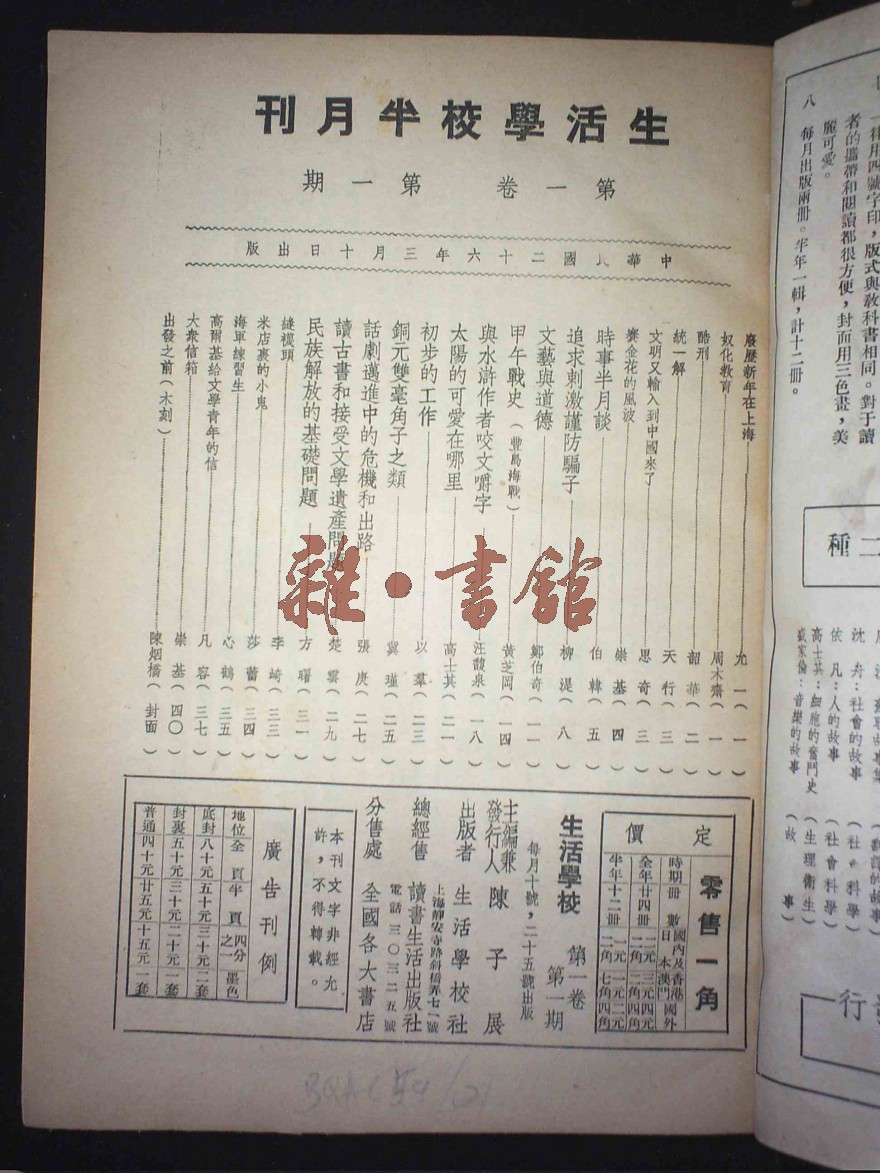 生活學校半月刊
第一卷　第一期
中華民國二十六年三月十日出版
廢歷新年在上海　尢一（一）
奴化教育　周木齋（一）
酷刑　韶華（二）
統一解　天行（三）
文明又輸入到中國來了　思奇（三）
賽金花的風波　崇基（四）
時事半月談　伯韓（五）
追求刺激謹防騙子　柳湜（八）
文藝與道德　鄭伯奇（一一）
甲午戰史（豐島海戰）　黃芝岡（一四）
與水滸作者咬文嚼字　汪馥泉（一八）
太陽的可愛在哪里　高士其（二一）
初步的工作　以羣（二三）
銅元雙毫角子之類　冀瑾（二五）
話劇邁進中的危機和出路　張庚（二七）
讀古書和接受文學遺產問題　楚雲（二九）
民族解放的基礎問題　方曙（三一）
縫襪頭　李崎（三三）
米店裏的小鬼　莎蕾（三四）
海軍練習生　心鶴（三五）
高爾基給文學青年的信　凡容（三七）
大衆信箱　崇基（四〇）
出發之前（木刻）　陳烟橋（封面）
雜·書館
定價
零售一角
時期　冊數　國內及日本　香港澳門　國外
全年　廿四冊　二元二角　三元二角　四元四角
半年　十二冊　一元二角　一元七角　二元四角
生活學校　第一卷　第一期
每月十號，二十五號出版
主編兼發行人　陳子展
出版者　生活學校社
總經售　讀書生活出版社
上海靜安寺路斜橋弄七一號
電話　三〇三二五號
分售處　全國各大書店
本刊文字非經允許，不得轉載。
廣告刊例
地位　全頁　半頁　四分之一　墨色
底封　八十元　五十元　三十元　二套
封裏　五十元　三十元　二十元　一套
普通　四十元　廿五元　十五元　一套
一律用四號字印，版式與教科書相同。對于讀
者的攜帶和閱讀都很方便，封面用三色畫，美
麗可愛。
八　每月出版兩冊。半年一輯，計十二冊。
二種
沈舟：社會的故事（社會科學）
依凡：人的故事（社會科學）
高士其：細胞的奮鬥史（生理衛生）
盛家倫：音樂的故事（故事）
行